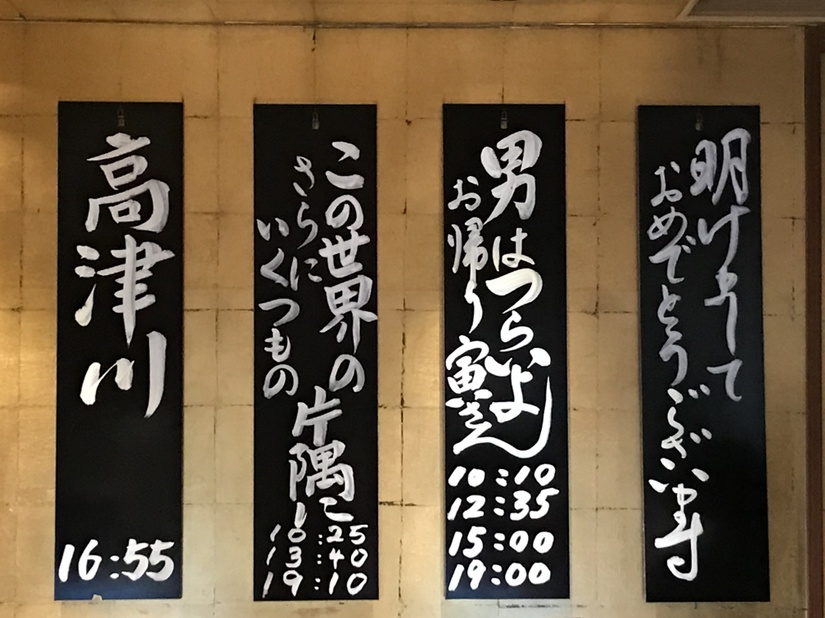 明けまして
おめでとうございます
男はつらいよ
お帰り寅さん
10:10
12:35
15:00
19:00
この世界の片隅に
さらに
いくつもの
10:25
13:40
19:10
高津川
16:55